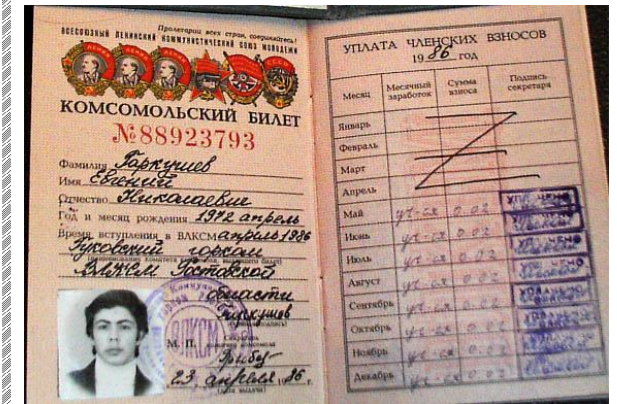 Пролетарии всех стран, соединяйтесь!
ВСЕСОЮЗНЫЙ ЛЕНИНСКИЙ КОММУНИСТИЧЕСКИЙ СОЮЗ МОЛОДЕЖИ
КОМСОМОЛЬСКИЙ БИЛЕТ
№88923793
Фамилия Гаркушев
Имя Евгений
Отчество Николаевич
Год и месяц рождения 1972 апрель
Время вступления в ВЛКСМ апрель 1986
горком
ВЛКСМ Ростовской
области
Гаркушев
ВЛКСМ
М. П. Секретарь
23 апреля 1986 г.
(дата выдачи)
УПЛАТА ЧЛЕНСКИХ ВЗНОСОВ
1986 год
Месяц Месячный заработок Сумма взноса Подпись секретаря
Январь
Февраль
Март
Апрель
Май уч-ся 0.02
Июнь уч-ся 0.02
Июль уч-ся 0.02
Август уч-ся 0.02
Сентябрь уч-ся 0.02
Октябрь уч-ся 0.02
Ноябрь уч-ся 0.02
Декабрь уч-ся 0.02